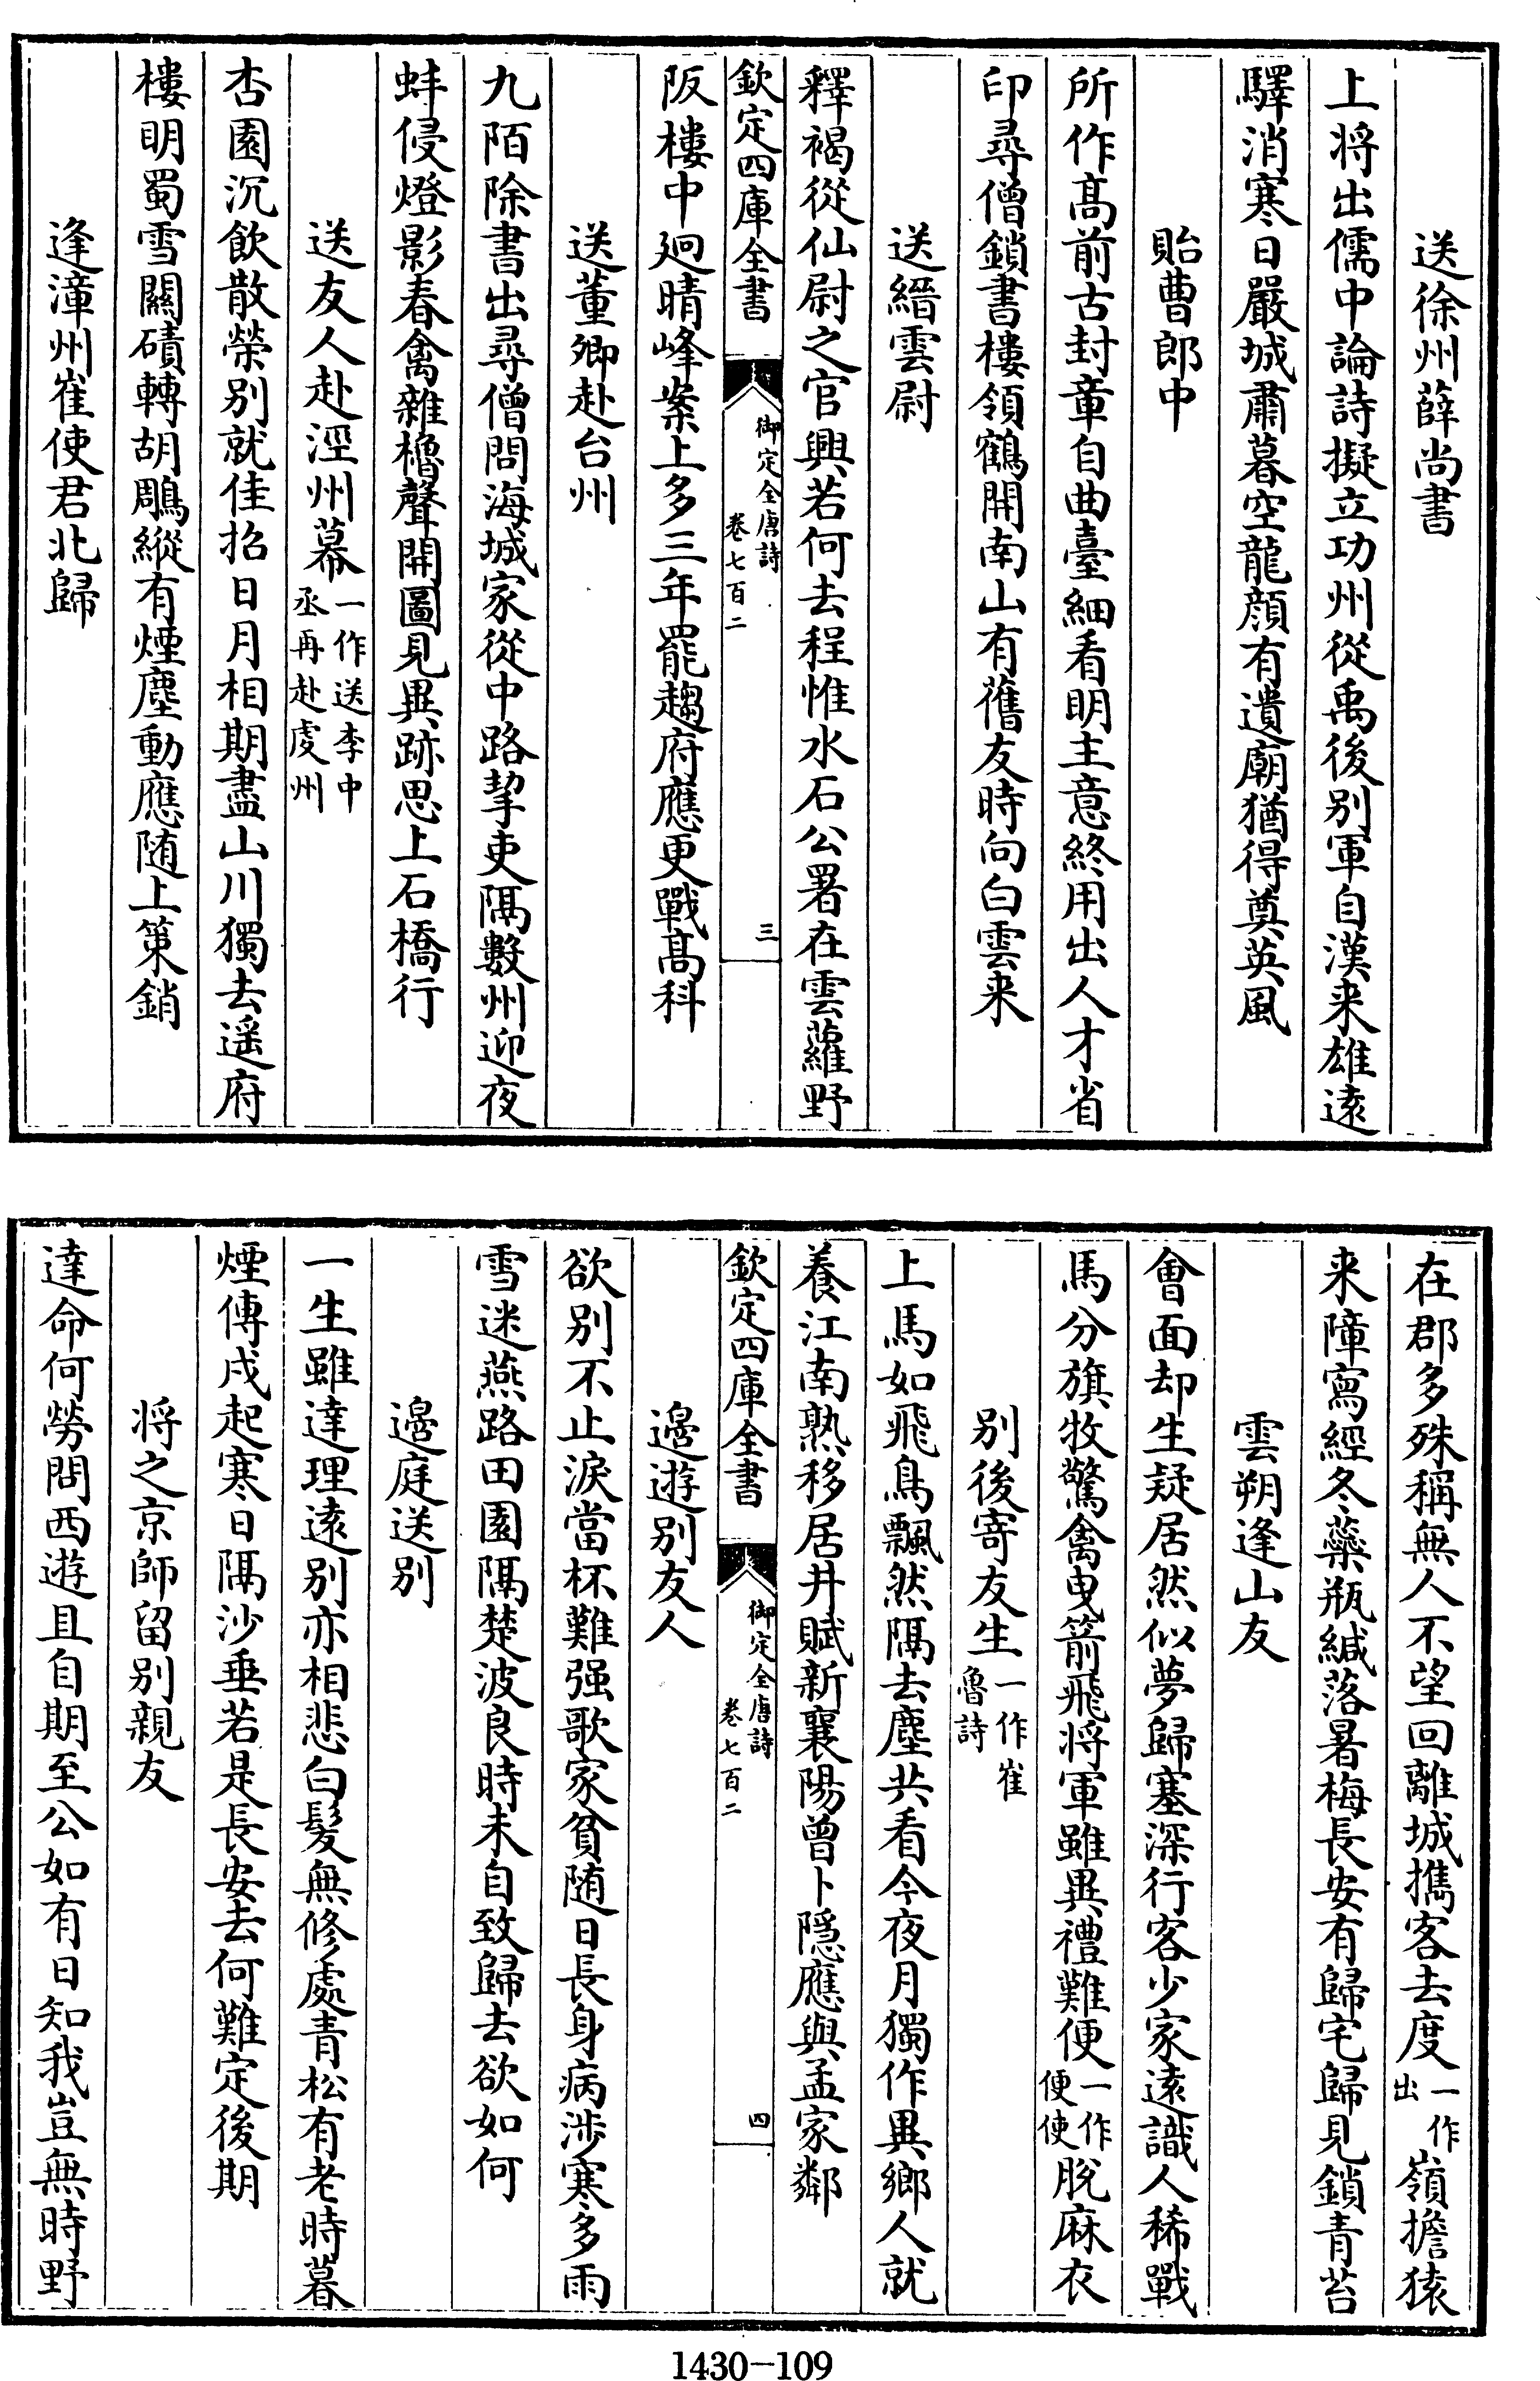 送徐州薛尚書
上将出儒中論詩擬立功州從禹後別軍自漢来雄遠
驛消寒日嚴城肅暮空龍顔有遺廟猶得奠英風
貽曹郎中
所作髙前古封章自曲臺細看明主意終用出人才省
印尋僧鎖書樓領鶴開南山有舊友時向白雲来
送縉雲尉
釋褐從仙尉之官興若何去程惟水石公署在雲蘿野
欽定四庫全書
御定全唐詩
卷七百二
三
阪樓中廻晴峰案上多三年罷趨府應更戰髙科
送董卿赴台州
九陌除書出尋僧問海城家從中路挈吏隔數州迎夜
蚌侵燈影春禽雜櫓聲開圖見異跡思上石橋行
送友人赴涇州幕一作送李中丞再赴虔州
杏園沉飲散榮別就佳招日月相期盡山川獨去遥府
樓明蜀雪關磧轉胡鵰縱有煙塵動應随上策銷
逢漳州崔使君北歸
在郡多殊稱無人不望回離城攜客去度一作出嶺擔猿
来障寫經冬蘂瓶緘落暑梅長安有歸宅歸見鎖青苔
雲朔逢山友
會面却生疑居然似夢歸塞深行客少家遠識人稀戰
馬分旗牧驚禽曳箭飛将軍雖異禮難便一作便使脫麻衣
別後寄友生一作崔魯詩
上馬如飛鳥飄然隔去塵共看今夜月獨作異鄉人就
養江南熟移居井賦新襄陽曾卜隱應與孟家鄰
欽定四庫全書
御定全唐詩
卷七百二
四
邊遊別友人
欲別不止淚當杯難强歌家貧随日長身病涉寒多雨
雪迷燕路田園隔楚波良時未自致歸去欲如何
邊庭送別
一生雖達理遠別亦相悲白髮無修處青松有老時暮
煙傳戍起寒日隔沙垂若是長安去何難定後期
将之京師留別親友
達命何勞問西遊且自期至公如有日知我豈無時野
1430-109